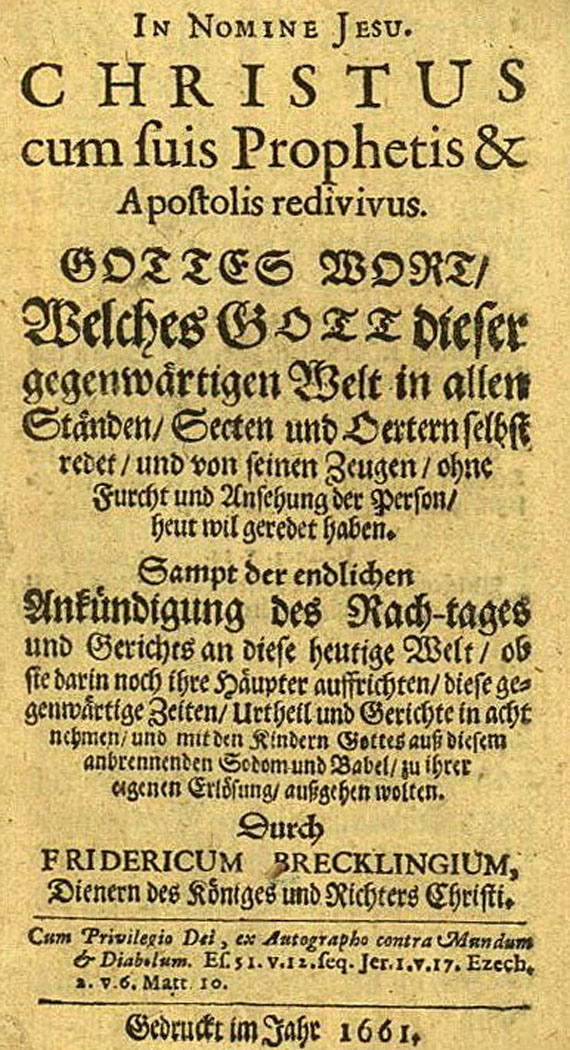 IN NOMINE JESU.
CHRISTUS
cum ſuis Prophetis &
Apoſtolis redivivus.
GOTTES WORT/
Welches GOTT dieſer
gegenwärtigen Welt in allen
Ständen/ Secten und Oertern ſelbſt
redet/ und von ſeinen Zeugen/ ohne
Furcht und Anſehung der Perſon/
heut wil geredet haben.
Sampt der endlichen
Ankündigung des Rach-tages
und Gerichts an dieſe heutige Welt/ ob
ſie darin noch ihre Häupter auffrichten/ dieſe ge-
genwärtige Zeiten/ Urtheil und Gerichte in acht
nehmen/ und mit den Kindern Gottes auß dieſem
anbrennenden Sodom und Babel/ zu ihrer
eigenen Erlöſung/ außgehen wolten.
Durch
FRIDERICUM BRECKLINGIUM,
Dienern des Königes und Richters Chriſti.
Cum Privilegio Dei, ex Autographo contra Mundum
& Diabolum. Eſ. 51. v. 12. ſeq. Jer. 1. v. 17. Ezech.
2. v. 6. Matt 10.
Gedruckt im Jahr 1661.